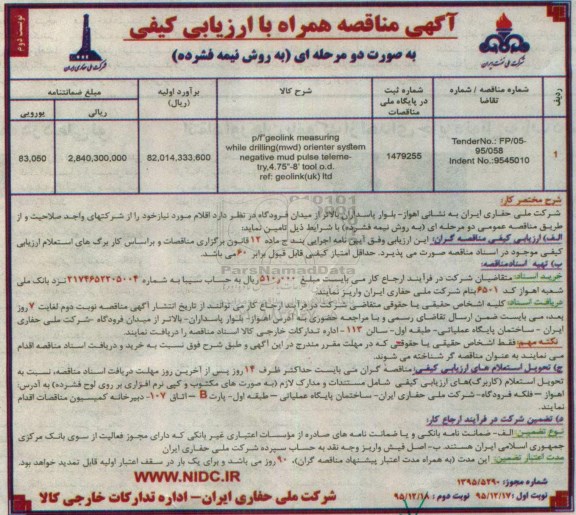 نوبت دوم
آگهی مناقصه همراه با ارزیابی کیفی
به صورت دو مرحله ای (به روش نیمه فشرده)
شرکت ملی نفت ایران
شرکت ملی حفاری ایران
ردیف
شماره مناقصه / شماره تقاضا
شماره ثبت در پایگاه ملی مناقصات
شرح کالا
برآورد اولیه (ریال)
مبلغ ضمانتنامه
ریالی
یورویی
۱
TenderNo.: FP/05-95/058
Indent No.:9545010
1479255
p/f"geolink measuring
while drilling(mwd) orienter system
negative mud pulse teleme-
try,4.75"-8' tool o.d.
ref: geolink(uk) ltd
82,014,333,600
2,840,300,000
83,050
شرح مختصر کار:
شرکت ملی حفاری ایران به نشانی اهواز- بلوار پاسداران بالاتر از میدان فرودگاه در نظر دارد اقلام مورد نیاز خود را از شرکتهای واجد صلاحیت و از
طریق مناقصه عمومی دو مرحله ای (به روش نیمه فشرده) با شرایط ذیل تامین نماید:
الف) ارزیابی کیفی مناقصه گران: این ارزیابی وفق آیین نامه اجرایی بند ج ماده ۱۲ قانون برگزاری مناقصات و براساس کاربرگ های استعلام ارزیابی
کیفی موجود در اسناد مناقصه صورت می پذیرد. حداقل امتیاز کیفی قابل قبول برابر ۶۰ می باشد.
ب) تهیه اسناد مناقصه
خرید اسناد: متقاضیان شرکت در فرآیند ارجاع کار می بایست مبلغ ۵۱۰,۰۰۰ ریال به حساب سیبا به شماره ۲۱۷۴۶۵۲۲۰۵۰۰۴ نزد بانک ملی
شعبه اهواز کد ۶۵۰۱ بنام شرکت ملی حفاری ایران واریز نمایند.
دریافت اسناد: کلیه اشخاص حقیقی یا حقوقی متقاضی شرکت در فرآیند ارجاع کار می توانند از تاریخ انتشار آگهی مناقصه نوبت دوم لغایت ۷ روز
بعد، می بایست ضمن ارسال تقاضای رسمی و با مراجعه حضوری به آدرس اهواز- بلوار پاسداران- بالاتر از میدان فرودگاه -شرکت ملی حفاری
ایران - ساختمان پایگاه عملیاتی- طبقه اول- سالن ۱۱۳- اداره تدارکات خارجی کالا اسناد مناقصه را دریافت نمایند.
نکته مهم: فقط اشخاص حقیقی یا حقوقی که در مهلت مقرر مندرج در این آگهی و طبق شرح فوق نسبت به خرید و دریافت اسناد مناقصه اقدام
می نمایند به عنوان مناقصه گر شناخته می شوند.
ج) تحویل استعلام های ارزیابی کیفی: مناقصه گران می بایست حداکثر ظرف ۱۴ روز پس از آخرین روز مهلت دریافت اسناد مناقصه نسبت به
تحویل استعلام (کاربرگ)های ارزیابی کیفی شامل مستندات و مدارک لازم (به صورت های مکتوب و کپی نرم افزاری بر روی لوح فشرده) به آدرس:
اهواز – فلکه فرودگاه- شرکت ملی حفاری ایران- ساختمان پایگاه عملیاتی – طبقه اول- پارت B – اتاق ۱۰۷- دبیرخانه کمیسیون مناقصات اقدام
نمایند.
د) تضمین شرکت در فرآیند ارجاع کار:
نوع تضمین: الف- ضمانت نامه بانکی و یا ضمانت نامه های صادره از مؤسسات اعتباری غیر بانکی که دارای مجوز فعالیت از سوی بانک مرکزی
جمهوری اسلامی ایران هستند. ب- اصل فیش واریز وجه نقد به حساب سپرده شرکت ملی حفاری ایران
مدت اعتبار تضمین: این مدت (به همراه مدت اعتبار پیشنهاد مناقصه گران)، ۹۰ روز می باشد و برای یک بار در سقف اعتبار اولیه قابل تمدید خواهد بود.
WWW.NIDC.IR
شماره مجوز: ۱۳۹۵/۵۲۹۰
نوبت اول: ۹۵/۱۲/۱۷ نوبت دوم: ۹۵/۱۲/۱۸
شرکت ملی حفاری ایران- اداره تدارکات خارجی کالا
ParsNamadData